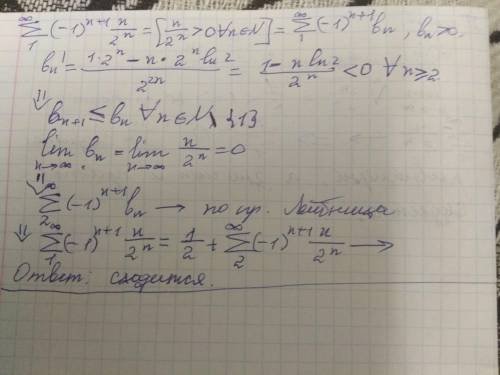 ∞ Σ 1 (-1)^{n+1} n/2^n = [n/2^n > 0 ∀n∈N] = ∞ Σ 1 (-1)^{n+1} bₙ, bₙ > 0.
bₙ' = (1·2^n - n·2^n ln 2)/2^{2n} = (1 - n ln 2)/2^n < 0 ∀n ≥ 2
⇓
bₙ₊₁ ≤ bₙ ∀n∈N \ {1}
lim n→∞ bₙ = lim n→∞ n/2^n = 0
⇓
∞ Σ 2 (-1)^{n+1} bₙ → по пр. Лейбница
⇓ ∞ Σ 1 (-1)^{n+1} n/2^n = 1/2 + ∞ Σ 2 (-1)^{n+1} n/2^n →
Ответ: сходится.